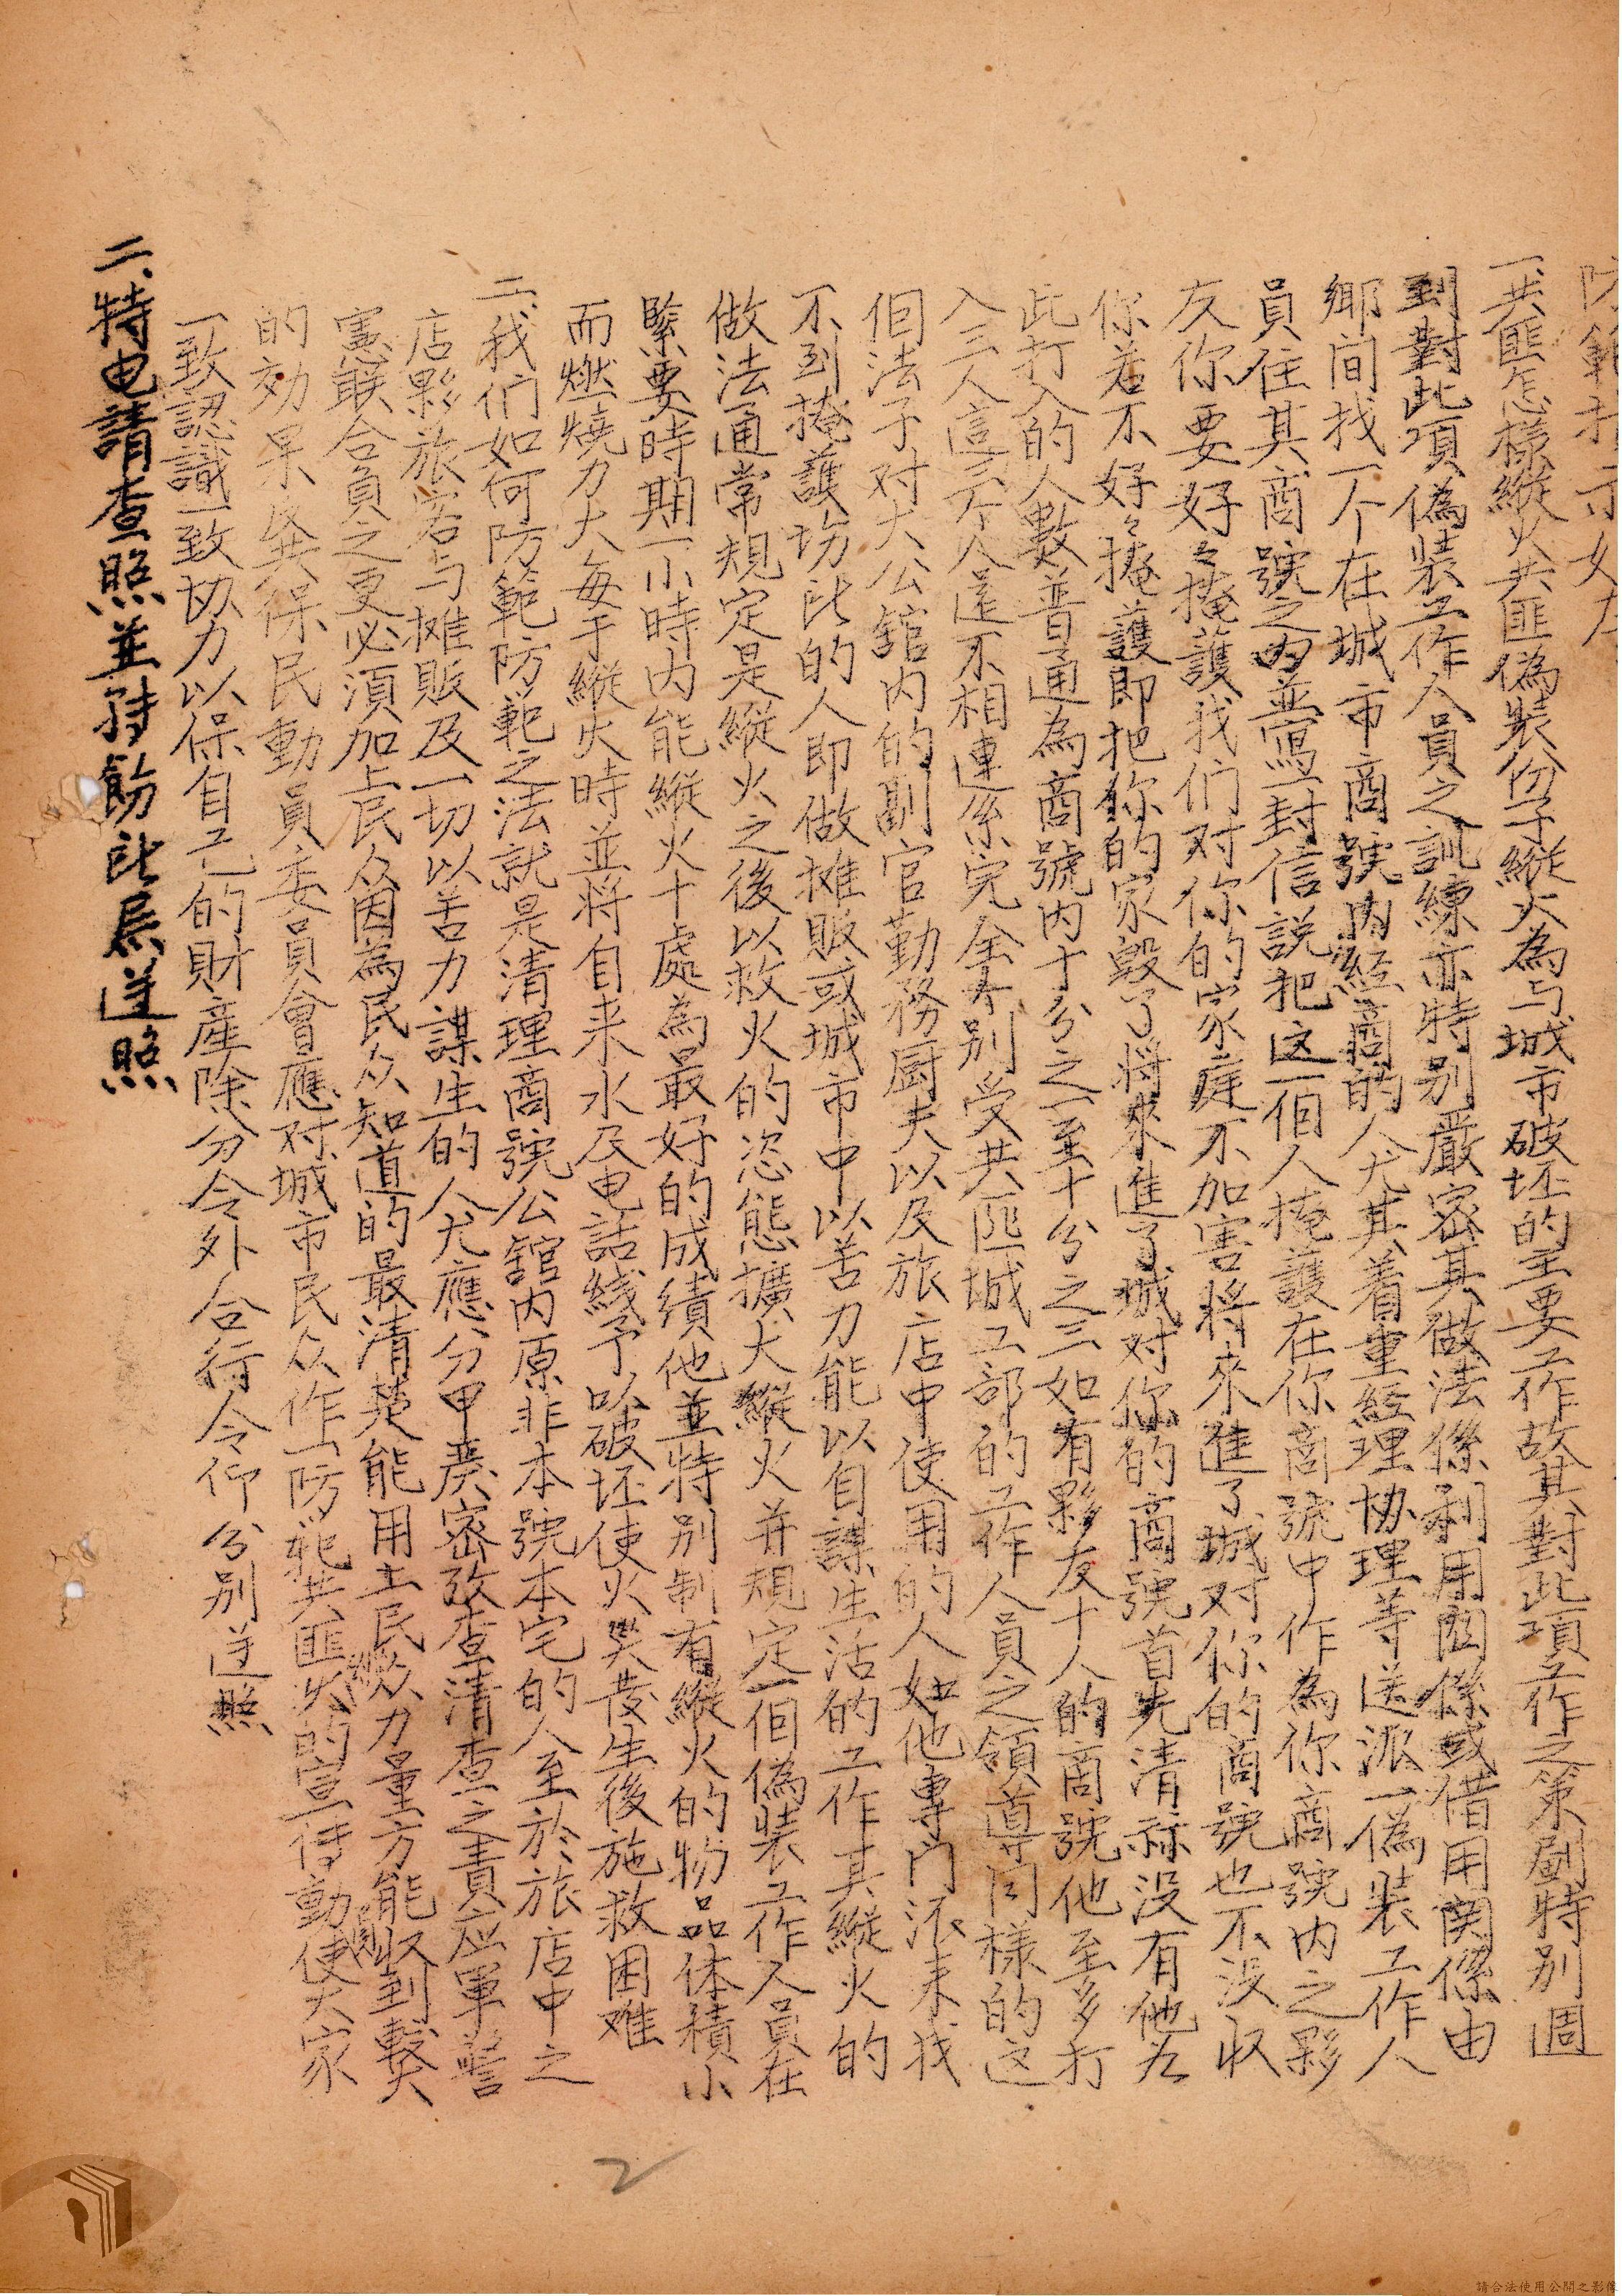 防範指示如左
一、共匪怎樣縱火共匪偽裝份子縱火為与城市破坯的主要工作故其對此項工作之策劃特别週
到對此項偽裝工作人員之訓練亦特别嚴密其做法係利用関係或借用関係由
鄉间找一个在城市商號内経商的人尤其着重経理协理等送派一偽裝工作人
員住其商號之内並寫一封信説把这一個人掩護在你商號中作為你商號内之夥
友你要好好掩護我们对你的家庭不加害将來進了城对你的商號也不没收
你若不好好掩護即把你的家毀了将來進了城对你的商號首先清祘没有他在
此打入的人數普通為商號内十分之一至十分之三如有夥友十人的商號他至多打
入三人這三个人還不相連係完全个别受共匪城工部的工作人員之領導同樣的这
個法子对大公舘内的副官勤務厨夫以及旅店中使用的人如他專門派来找
不到掩護塲所的人即做攤販或城市中以苦力能以自謀生活的工作其縱火的
做法通常規定是縱火之後以救火的恣態擴大縱火并規定一個偽裝工作人員在
緊要時期一小時内能縱火十處為最好的成績他並特别制有縱火的物品体積小
而燃燒力大每于縱火時並将自来水及电話綫予以破坯使火災發生後施救困难
二、我们如何防範防範之法就是清理商號公舘内原非本號本宅的人至於旅店中之
店夥旅客与摊販及一切以苦力謀生的人尤應分甲嚴密攷查清查之責应軍警
憲联合負之更必須加上民众因為民众知道的最清楚能用土民众力量方能收到繫
的効果各共保民動員委員會應对城市民众作一防範共匪縱火的宣传動使大家
一致認識一致协力以保自己的財產除分令外合行令仰分别遵照
二、特电請查照並轉飭所属遵照
2
請合法使用公開之影像